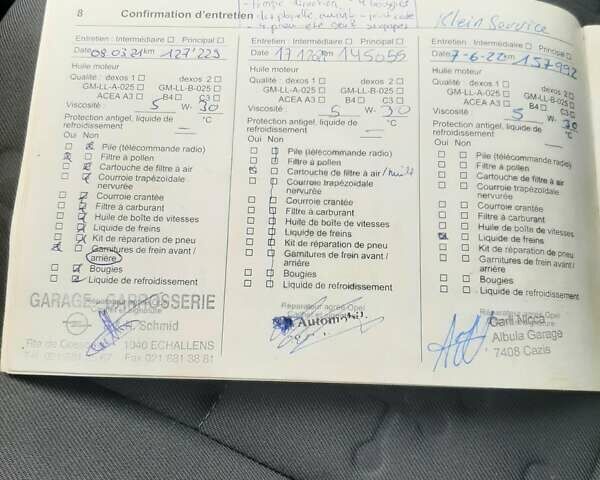 8 Confirmation d'entretien
Klein Service
Entretien: Intermédiaire Principal
Date 08.03.21 km 127'223
Huile moteur
Qualité: dexos 1 dexos 2
GM-LL-A-025 GM-LL-B-025
ACEA A3 B4 C3
Viscosité 5 W- 30
Protection antigel, liquide de
refroidissement — °C
Oui Non
Pile (télécommande radio)
Filtre à pollen
Cartouche de filtre à air
Courroie trapézoïdale
nervurée
Courroie crantée
Filtre à carburant
Huile de boîte de vitesses
Liquide de freins
Kit de réparation de pneu
Garnitures de frein avant /
arrière
Bougies
Liquide de refroidissement
GARAGE CARROSSERIE
Schmid
1040 ECHALLENS
Fax 021 881 38 81
Entretien: Intermédiaire Principal
Date km 145055
Huile moteur
Qualité: dexos 1 dexos 2
GM-LL-A-025 GM-LL-B-025
ACEA A3 B4 C3
Viscosité 5 W- 30
Protection antigel, liquide de
refroidissement — °C
Oui Non
Pile (télécommande radio)
Filtre à pollen
Cartouche de filtre à air
Courroie trapézoïdale
nervurée
Courroie crantée
Filtre à carburant
Huile de boîte de vitesses
Liquide de freins
Kit de réparation de pneu
Garnitures de frein avant /
arrière
Bougies
Liquide de refroidissement
Réparateur agréé Opel
Entretien: Intermédiaire Principal
Date 7-6-22 km 157992
Huile moteur
Qualité: dexos 1 dexos 2
GM-LL-A-025 GM-LL-B-025
ACEA A3 B4 C3
Viscosité 5 W- 30
Protection antigel, liquide de
refroidissement — °C
Oui Non
Pile (télécommande radio)
Filtre à pollen
Cartouche de filtre à air
Courroie trapézoïdale
nervurée
Courroie crantée
Filtre à carburant
Huile de boîte de vitesses
Liquide de freins
Kit de réparation de pneu
Garnitures de frein avant /
arrière
Bougies
Liquide de refroidissement
Réparateur agréé Opel
Albula Garage
7408 Cazis